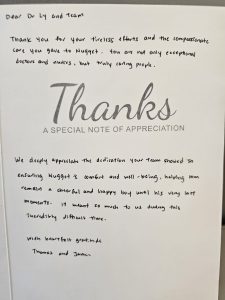 Dear Dr Ly and Team
Thank you for your tireless efforts and the compassionate
care you gave to Nugget. You are not only exceptional
doctors and nurses, but truly caring people.
Thanks
A SPECIAL NOTE OF APPRECIATION
We deeply appreciate the dedication your team showed in
ensuring Nugget's comfort and well-being, helping him
remain a cheerful and happy boy until his very last
moments. It meant so much to us during this
incredibly difficult time.
With heartfelt gratitude
Thomas and